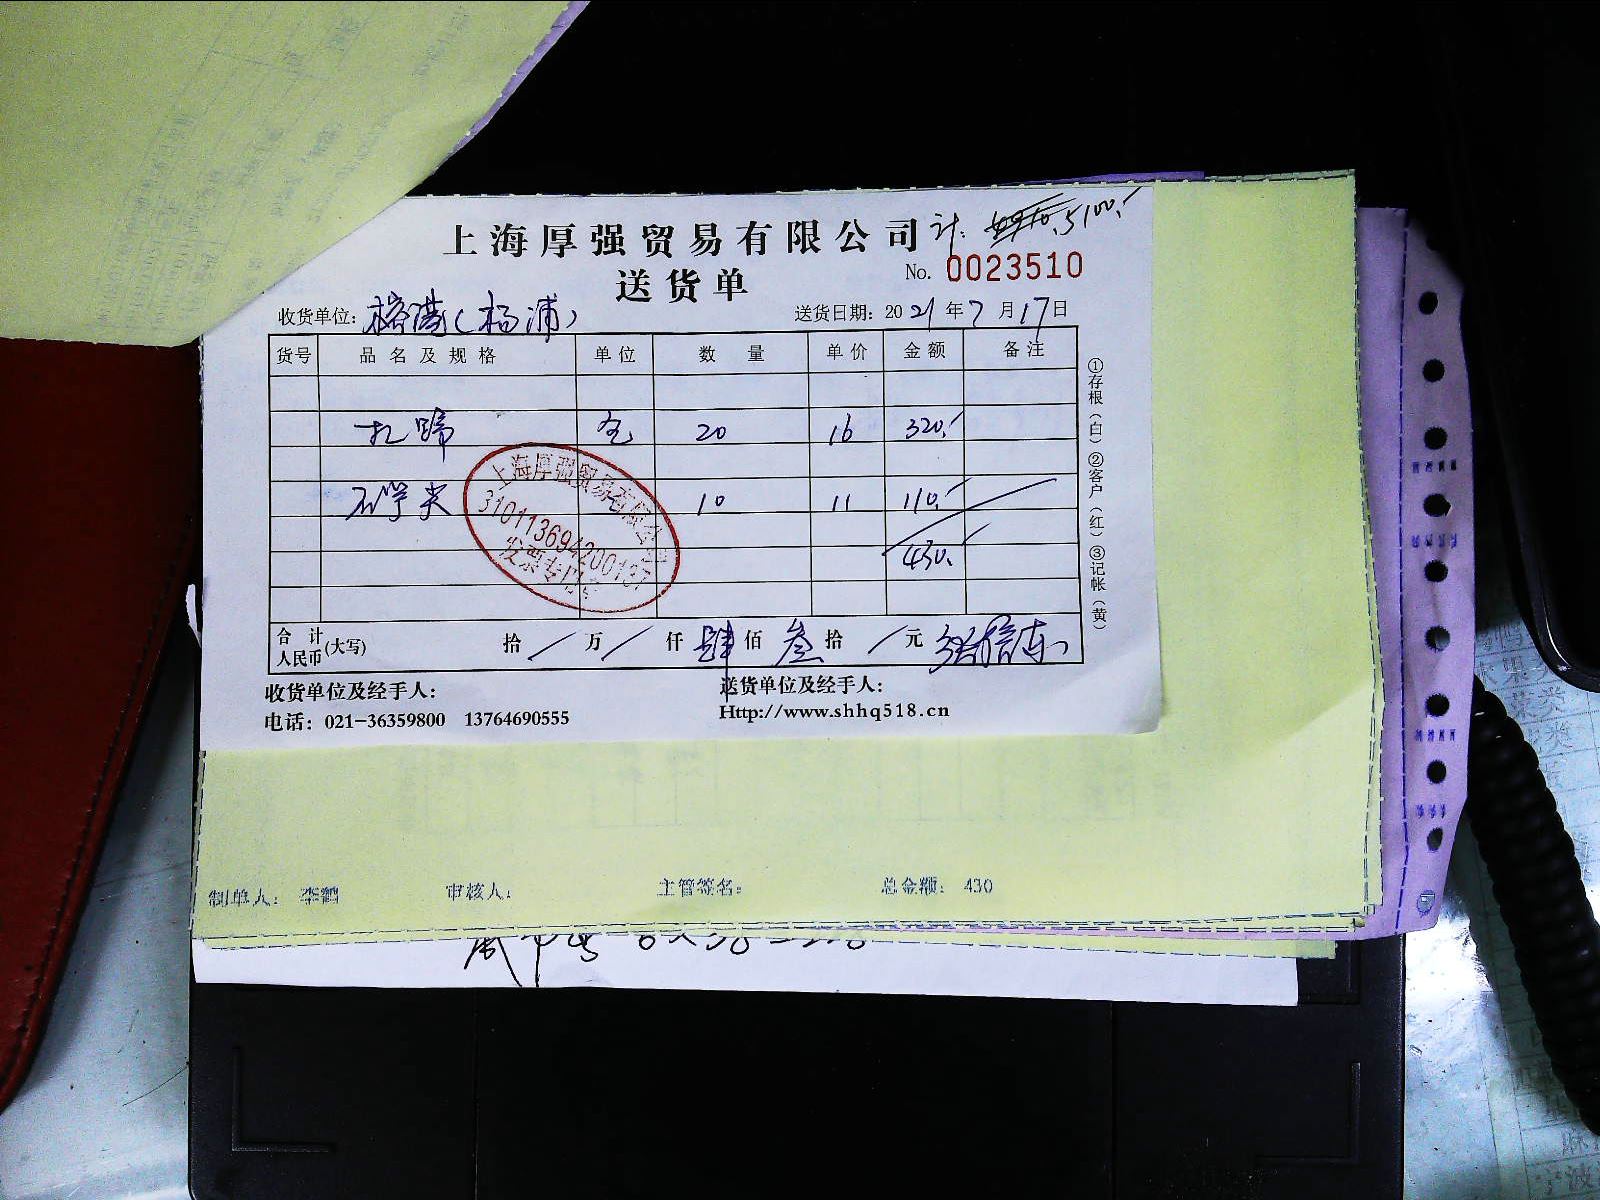 上海厚强贸易有限公司 计: 5100.-
送货单 No. 0023510
收货单位: 榕港(杨浦) 送货日期: 2021年7月17日
货号 品名及规格 单位 数量 单价 金额 备注
扎蹄 包 20 16 320.-
石学尖 10 11 110.-
430.
上海厚强贸易有限公司
310113694200137
发票专用章
合计人民币(大写) 拾 / 万 / 仟 肆 佰 叁 拾 / 元
收货单位及经手人: 送货单位及经手人:
电话: 021-36359800 13764690555 Http://www.shhq518.cn
①存根(白)②客户(红)③记帐(黄)
制单人: 李鹤 审核人: 主管签名: 总金额: 430